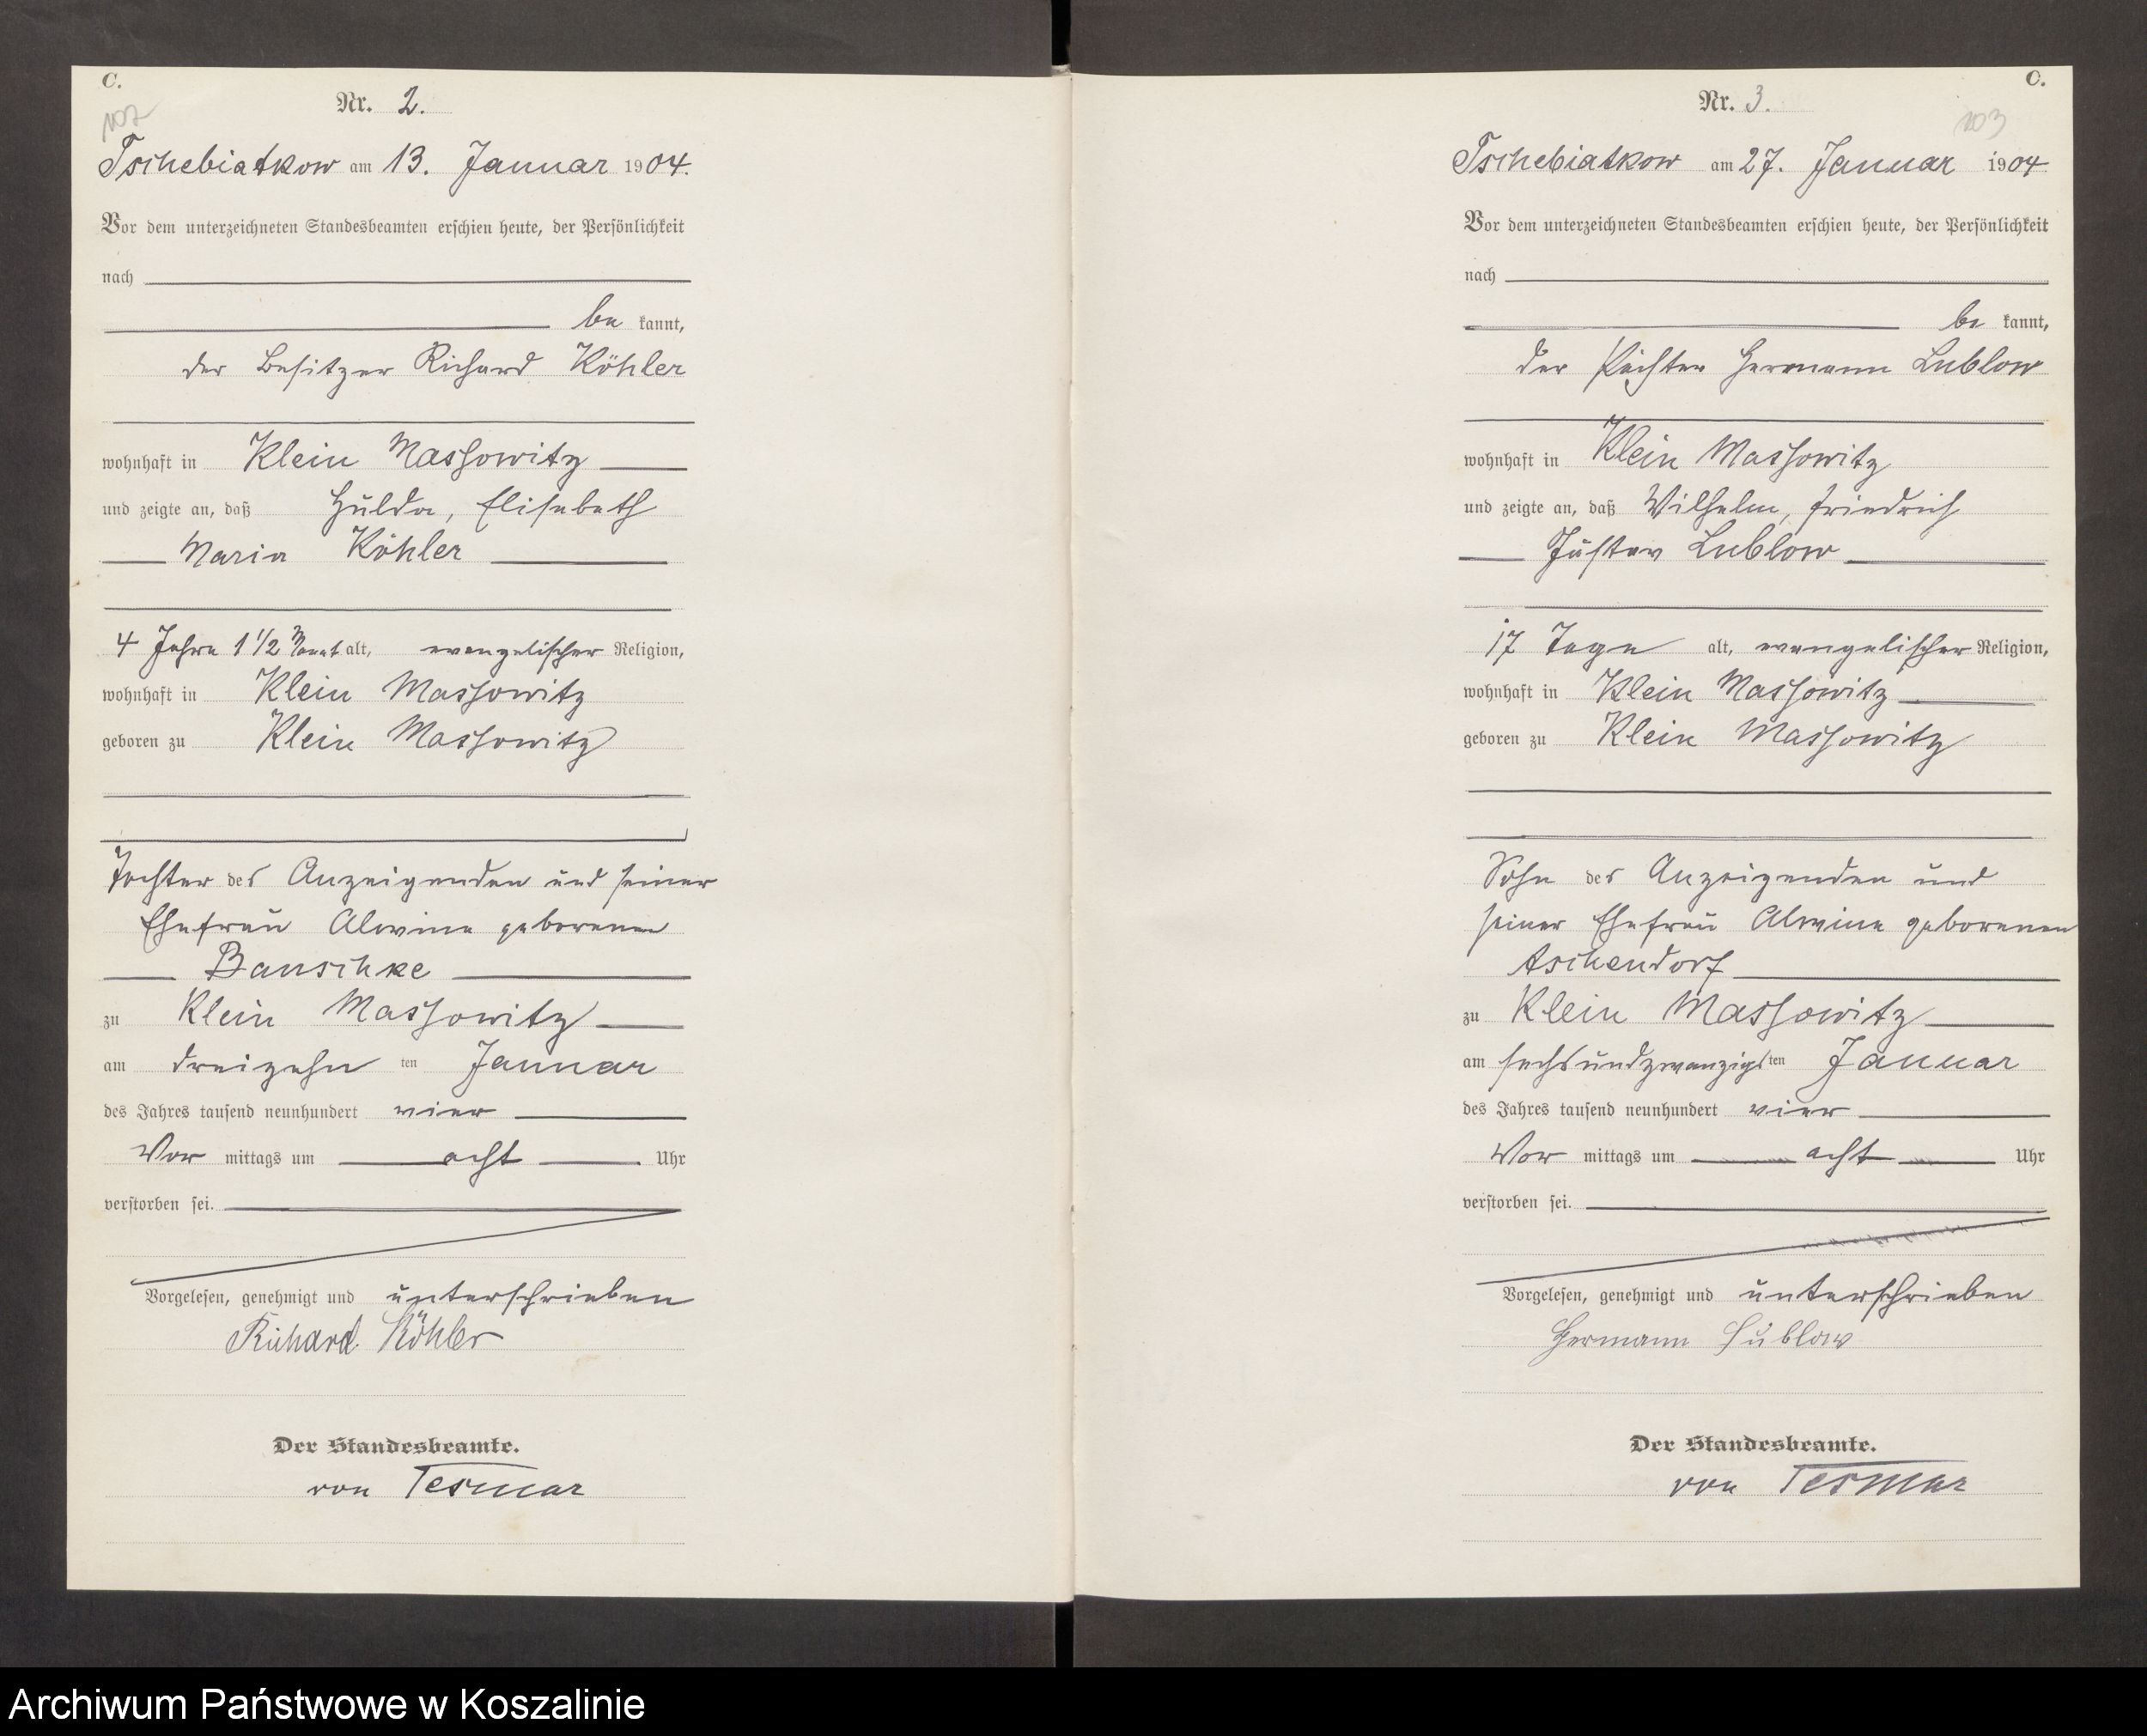 C.
Nr. 2.
102
Tschebiatkow am 13. Januar 1904.
Vor dem unterzeichneten Standesbeamten erschien heute, der Persönlichkeit
nach
be kannt,
der Besitzer Richard Köhler
wohnhaft in Klein Massowitz
und zeigte an, daß Hulda, Elisabeth
Maria Köhler
4 Jahre 1 1/2 Monat alt, evangelischer Religion,
wohnhaft in Klein Massowitz
geboren zu Klein Massowitz
Tochter des Anzeigenden und seiner
Ehefrau Alwine geborenen
Banschke
zu Klein Massowitz
am dreizehn ten Januar
des Jahres tausend neunhundert vier
Vor mittags um acht Uhr
verstorben sei.
Vorgelesen, genehmigt und unterschrieben
Richard Köhler
Der Standesbeamte.
von Tesmar
C.
Nr. 3.
103
Tschebiatkow am 27. Januar 1904
Vor dem unterzeichneten Standesbeamten erschien heute, der Persönlichkeit
nach
be kannt,
der Pächter Hermann Lublow
wohnhaft in Klein Massowitz
und zeigte an, daß Wilhelm, Friedrich
Gustav Lublow
17 Tage alt, evangelischer Religion,
wohnhaft in Klein Massowitz
geboren zu Klein Massowitz
Sohn des Anzeigenden und
seiner Ehefrau Alwine geborenen
Aschendorf
zu Klein Massowitz
am sechsundzwanzigsten Januar
des Jahres tausend neunhundert vier
Vor mittags um acht Uhr
verstorben sei.
Vorgelesen, genehmigt und unterschrieben
Hermann Lublow
Der Standesbeamte.
von Tesmar
Archiwum Państwowe w Koszalinie